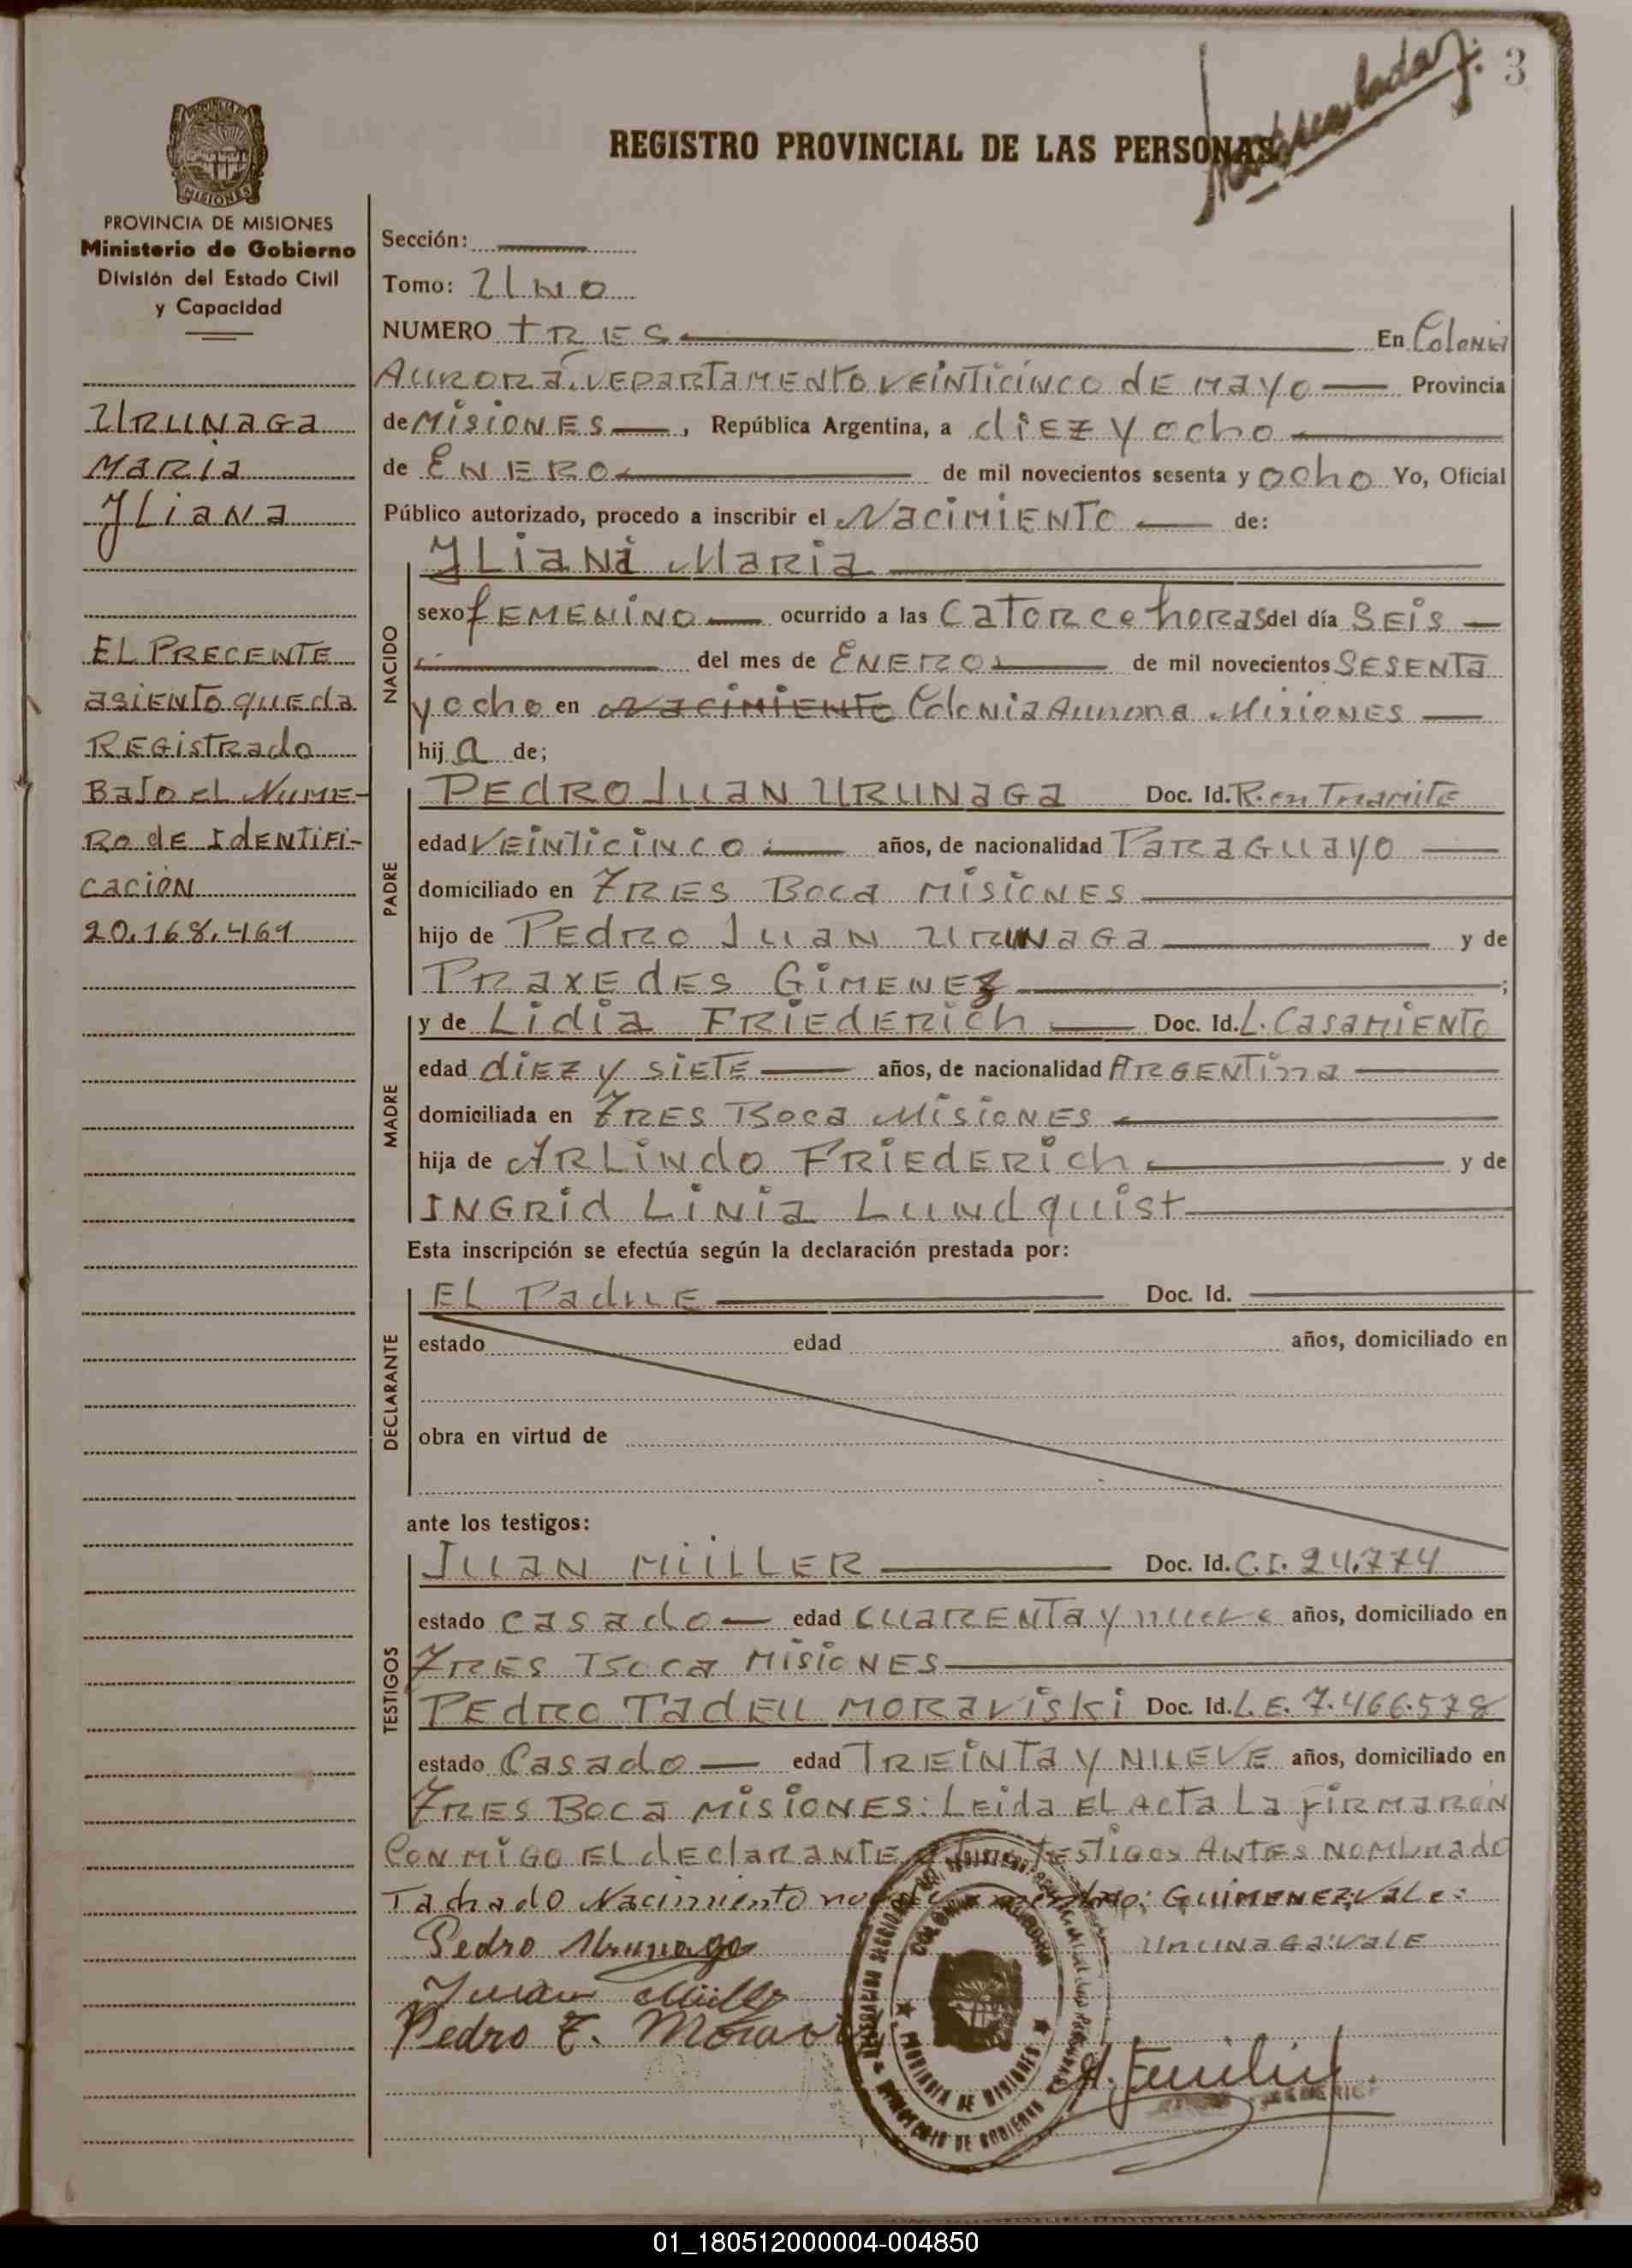 3
REGISTRO PROVINCIAL DE LAS PERSONAS
PROVINCIA DE MISIONES
Ministerio de Gobierno
División del Estado Civil
y Capacidad
URUNAGA
MARIA
YLIANA
EL PRECENTE
ASIENTO QUEDA
REGISTRADO
BAJO EL NUME-
RO DE IDENTIFI-
CACION
20.168.461
Sección:
Tomo: UNO
NUMERO TRES En Colonia
AURORA, DEPARTAMENTO VEINTICINCO DE MAYO Provincia
de MISIONES, República Argentina, a diez y ocho
de ENERO de mil novecientos sesenta y ocho Yo, Oficial
Público autorizado, procedo a inscribir el NACIMIENTO de:
NACIDO
YLIANA MARIA
sexo FEMENINO ocurrido a las CATORCE horas del día SEIS
del mes de ENERO de mil novecientos SESENTA
y ocho en Nacimiento Colonia Aurora Misiones
hij a de;
PADRE
PEDRO JUAN URUNAGA Doc. Id. R. en Tramite
edad VEINTICINCO años, de nacionalidad PARAGUAYO
domiciliado en TRES BOCA MISIONES
hijo de PEDRO JUAN URUNAGA y de
PRAXEDES GIMENEZ;
MADRE
y de LIDIA FRIEDERICH Doc. Id. L. CASAMIENTO
edad DIEZ Y SIETE años, de nacionalidad ARGENTINA
domiciliada en TRES BOCA MISIONES
hija de ARLINDO FRIEDERICH y de
INGRID LINIA LUNDQUIST
Esta inscripción se efectúa según la declaración prestada por:
DECLARANTE
EL Padre Doc. Id.
estado edad años, domiciliado en
obra en virtud de
ante los testigos:
TESTIGOS
JUAN MÜLLER Doc. Id. C.I. 24.774
estado casado edad CUARENTA y nueve años, domiciliado en
TRES BOCA MISIONES
PEDRO TADEU MORAVISKI Doc. Id. L.E. 7.466.578
estado Casado edad TREINTA Y NUEVE años, domiciliado en
TRES BOCA MISIONES: LEIDA EL ACTA LA FIRMARON
CONMIGO EL DECLARANTE TESTIGOS ANTES NOMBRADO
Tachado Nacimiento GUIMENEZ; VALE:
URUNAGA: VALE
Pedro Urunaga
Juan Müller
Pedro T. Morav
COLONIA AURORA
PROVINCIA DE MISIONES
MINISTERIO DE GOBIERNO
01_180512000004-004850